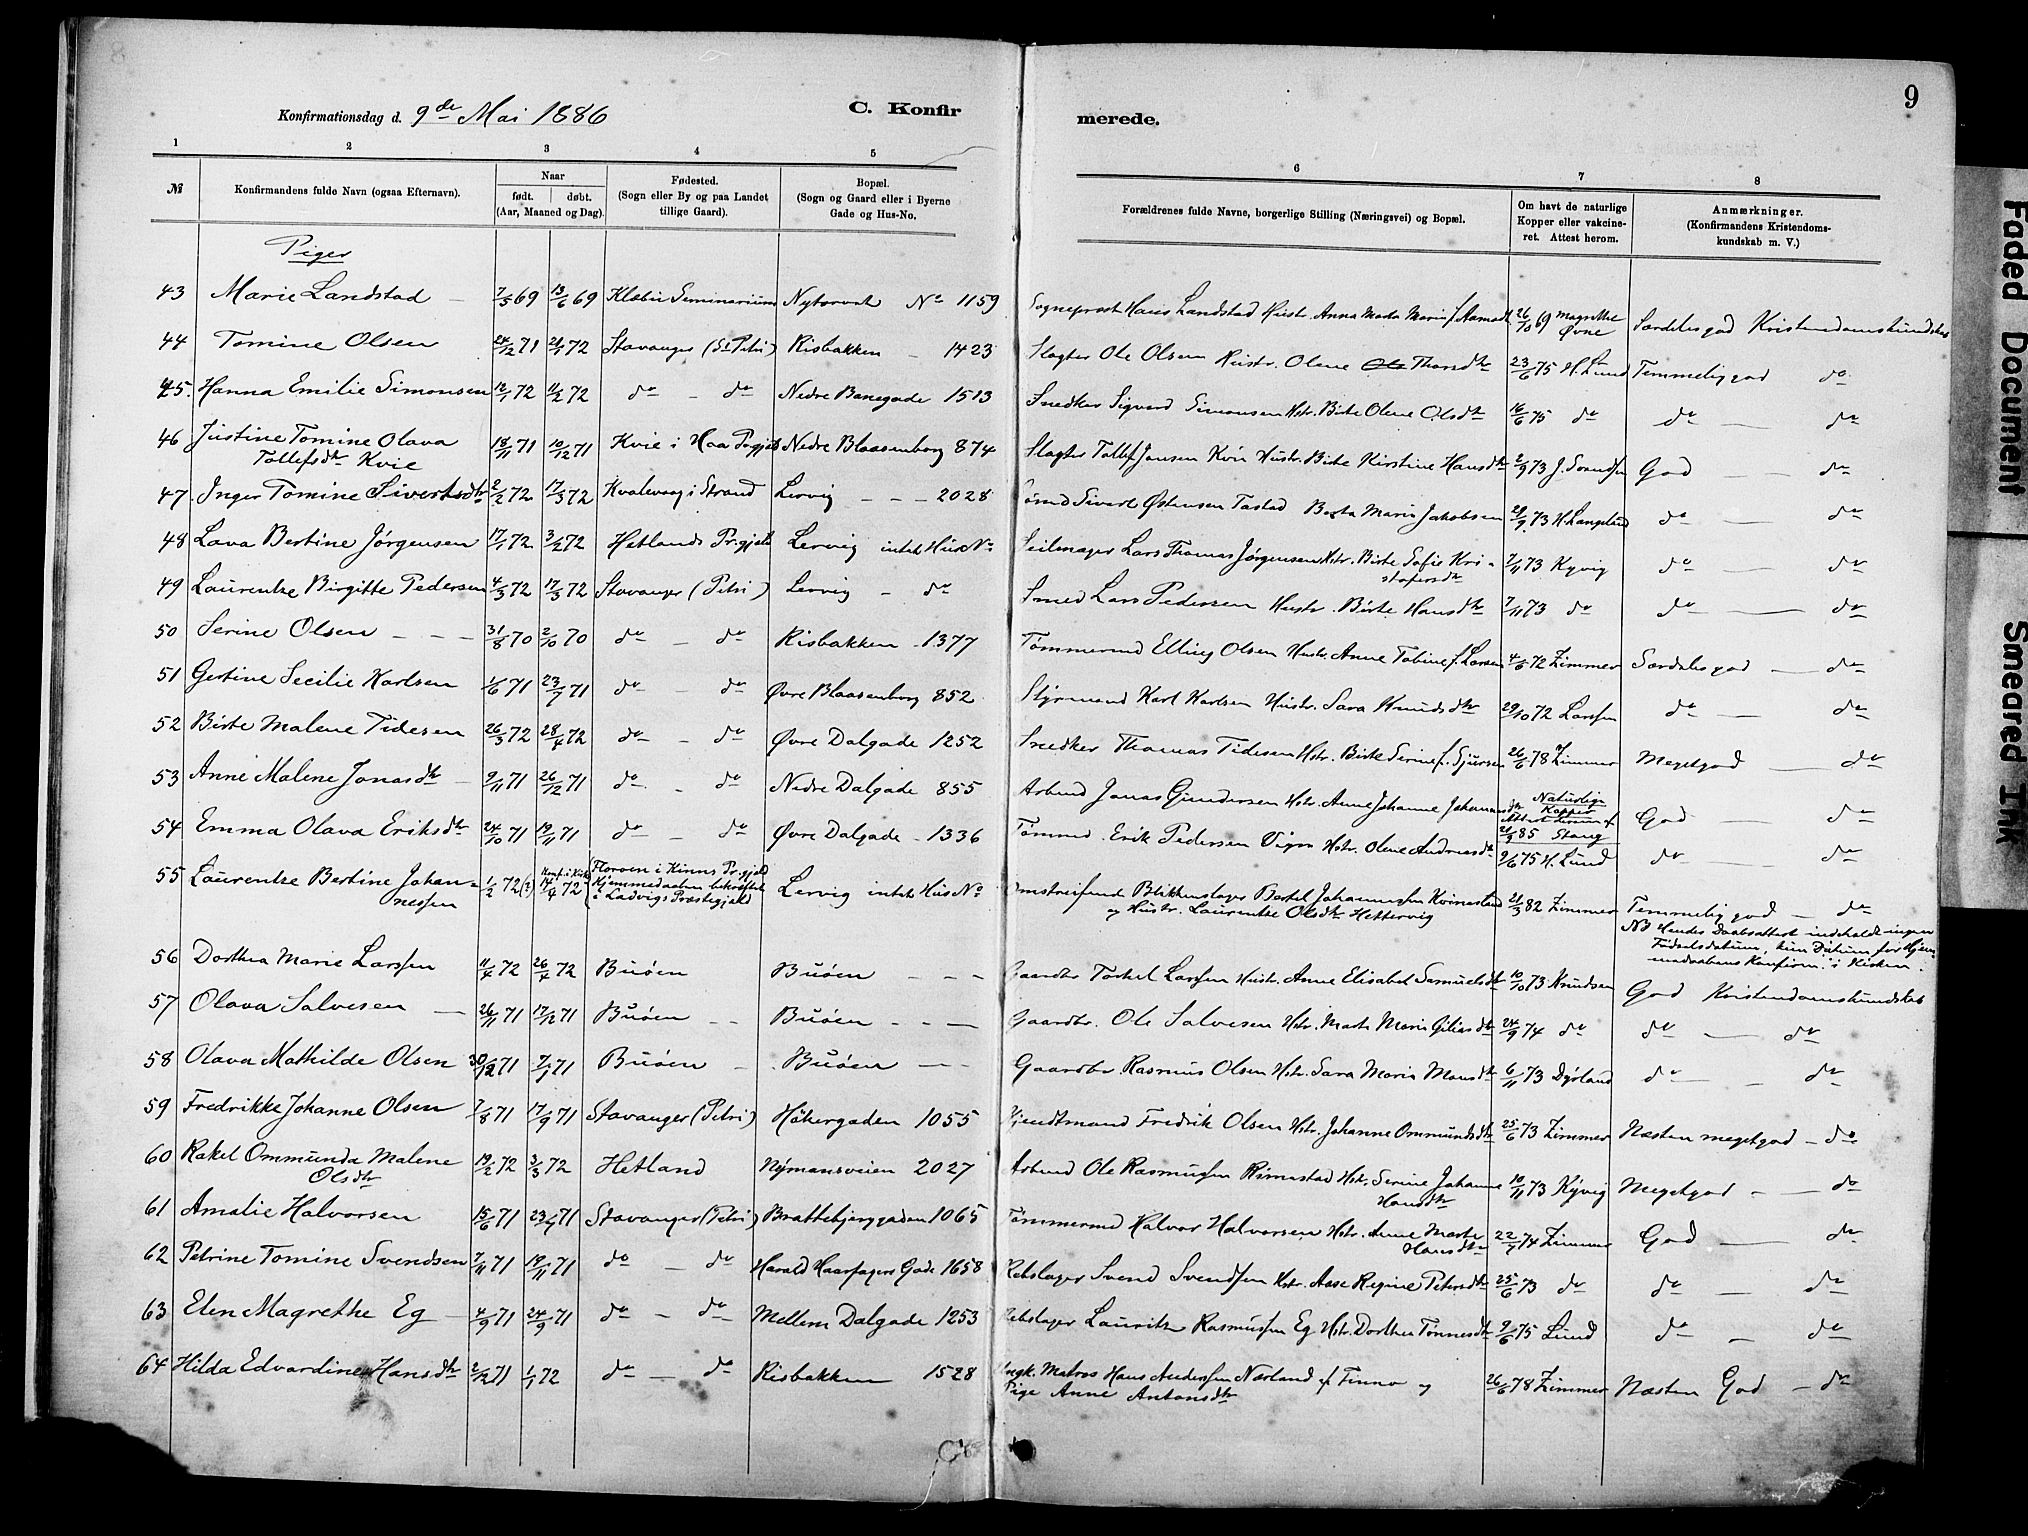 9
Konfirmationsdag d. 9de Mai 1886
C. Konfir merede.
1 2 3 4 5 6 7 8
№ Konfirmandens fulde Navn (ogsaa Efternavn). Naar født. døbt. (Aar, Maaned og Dag). Fødested. (Sogn eller By og paa Landet tillige Gaard). Bopæl. (Sogn og Gaard eller i Byerne Gade og Hus-No. Forældrenes fulde Navne, borgerlige Stilling (Næringsvei) og Bopæl. Om havt de naturlige Kopper eller vakcineret. Attest herom. Anmærkninger. (Konfirmandens Kristendomskundskab m. V.)
Piger
43 Marie Landstad 7/5 69 13/6 69 Klæbu Seminarium Nytorvet No 1159 Sogneprest Hans Landstad Hustr. Anna Marta Marie f. Aamodt 26/10 69 Magrethe Øvne Særdelesgod Kristendomskundskab
44 Tomine Olsen 24/12 71 21/1 72 Stavanger (St Petri) Risbakken 1423 Slagter Ole Olsen Hustr. Olene Thorsdtr 23/6 75 H. Lund Temmelig god do
45. Hanna Emilie Simonsen 12/1 72 11/2 72 do - do Nedre Banegade 1513 Snedker Sigvard Simonsen Hstr. Birte Olene Olsdtr 16/6 75 do do do
46 Justine Tomine Olava Tollefsdtr Kvie 18/11 71 10/12 71 Kvie i Haa Prgjeld Nedre Blaasenborg 874 Slagter Tollef Jansen Kvie Hustr. Birte Kirstine Hansdtr 2/9 73 J. Svendsen God do
47. Inger Tomine Sivertsdtr 2/2 72 17/3 72 Kvalevaag i Strand Lervig - - - 2028 Sivert Østensen Tastad Berta Marie Jakobsen 29/9 73 H. Langeland do do
48 Lava Bertine Jørgensen 17/1 72 3/2 72 Hetlands Pr.gjeld Lervig intet Hus No Seilmager Lars Thomas Jørgensen Hstr. Birte Sofie Kristofersdtr 7/11 73 Kyvig do do
49 Laurentze Birgitte Pedersen 4/3 72 17/3 72 Stavanger (Petri) Lervig - do Smed Lars Pedersen Hustr. Birte Hansdtr 7/11 73 do do do
50 Serine Olsen - - - 31/8 70 2/10 70 do - do Risbakken - 1377 Tømmermd Elling Olsen Hustr. Anne Tobine f. Larsen 4/6 72 Zimmer Særdelesgod do
51 Gertine Secilie Karlsen 1/6 71 23/7 71 do - do Øvre Blaasenborg 852 Styrmand Karl Karlsen Hustr. Sara Knudsdtr 29/10 72 Larsen do do
52 Birte Malene Tidesen 26/3 72 28/4 72 do - do Øvre Dalgade 1252 Snedker Thomas Tidesen Hstr. Birte Serine f. Sjursen 26/6 78 Zimmer Megetgod do
53 Anne Malene Jonasdtr 9/11 71 26/12 71 do - do Nedre Dalgade 855 Arbmd Jonas Gundersen Hstr. Anne Johanne Johannesdtr Naturlige Kopper Attest derom af 21/9 85 Stang God do
54 Emma Olava Eriksdtr 24/10 71 19/11 71 do - do Øvre Dalgade - 1336 Tømmd. Erik Pedersen Vigre Hstr. Olene Andreasdtr 9/6 75 H. Lund do do
55 Laurentze Bertine Johannessen 1/2 72 (?) Konf. i Kirk 14/4 72 (Floroen i Kinns Pr.gjeld Hjemmedaaben bekræftet i Ladvigs Præstegjeld Lervig intet Hus No Omstreifende Blikkenslager Bertel Johannessen Kvinesland og Hustr. Laurentze Olsdtr Hettervig 21/3 82 Zimmer Temmelig god - do
NB Hendes Daabsattest indeholdt ingen Fødselsdatum, kun Datum for Hjemmedaabens Konfirm. i Kirken.
56 Dorthea Marie Larssen 11/4 72 26/4 72 Buøen Buøen - - - Gaardbr Torkel Larssen Hustr. Anne Elisabet Samuelsdtr 10/10 73 Knudsen God Kristendomskundskab
57 Olava Salvesen 26/11 71 17/12 71 Buøen - - Buøen - - - Gaardbr. Ole Salvesen Hstr. Marte Marie Giliasdtr 24/9 74 do do do
58 Olava Mathilde Olsen 30/12 71 7/1 71 Buøen - Buøen - - Gaardbr Rasmus Olsen Hstr. Sara Maria Monsdtr 6/11 73 Dyrland do do
59 Fredrikke Johanne Olsen 7/8 71 17/9 71 Stavanger (Petri) Høkergaden 1055 Kjendtmand Fredrik Olsen Hstr. Johanne Ommundsdtr 25/6 73 Zimmer Næsten megetgod - do
60 Rakel Ommunda Malene Olsdtr 19/2 72 3/3 72 Hetland Nymansveien 2027 Arbmd Ole Rasmussen Rimestad Hstr. Serine Johanne Hansdtr 10/11 73 Kyvig Megetgod - do
61 Amalie Halvorsen 15/6 71 23/7 71 Stavanger (Petri) Brattebjerggaden 1065 Tømmermd Halvor Halvorsen Hstr. Anne Marte Hansdtr 22/7 74 Zimmer God do
62 Petrine Tomine Svendsen 7/11 71 19/11 71 do - do Harald Haarfagers Gade 1658 Rebslager Svend Svendsen Hstr. Aase Regine Petersdtr 25/6 73 do do do
63 Elen Magrethe Eg 4/9 71 24/9 71 do - do Mellem Dalgade 1253 Rebslager Lauritz Rasmussen Eg Hstr. Dorthea Tønnesdtr 9/6 75 Lund do do
64 Hilda Edvardine Hansdtr 2/12 71 1/1 72 do - do Risbakken 1528 Ungk. Matros Hans Andersen Nærland af Finnø og Pige Anne Antonsdtr 26/6 78 Zimmer Næsten God - do
Faded Document
Smeared Ink